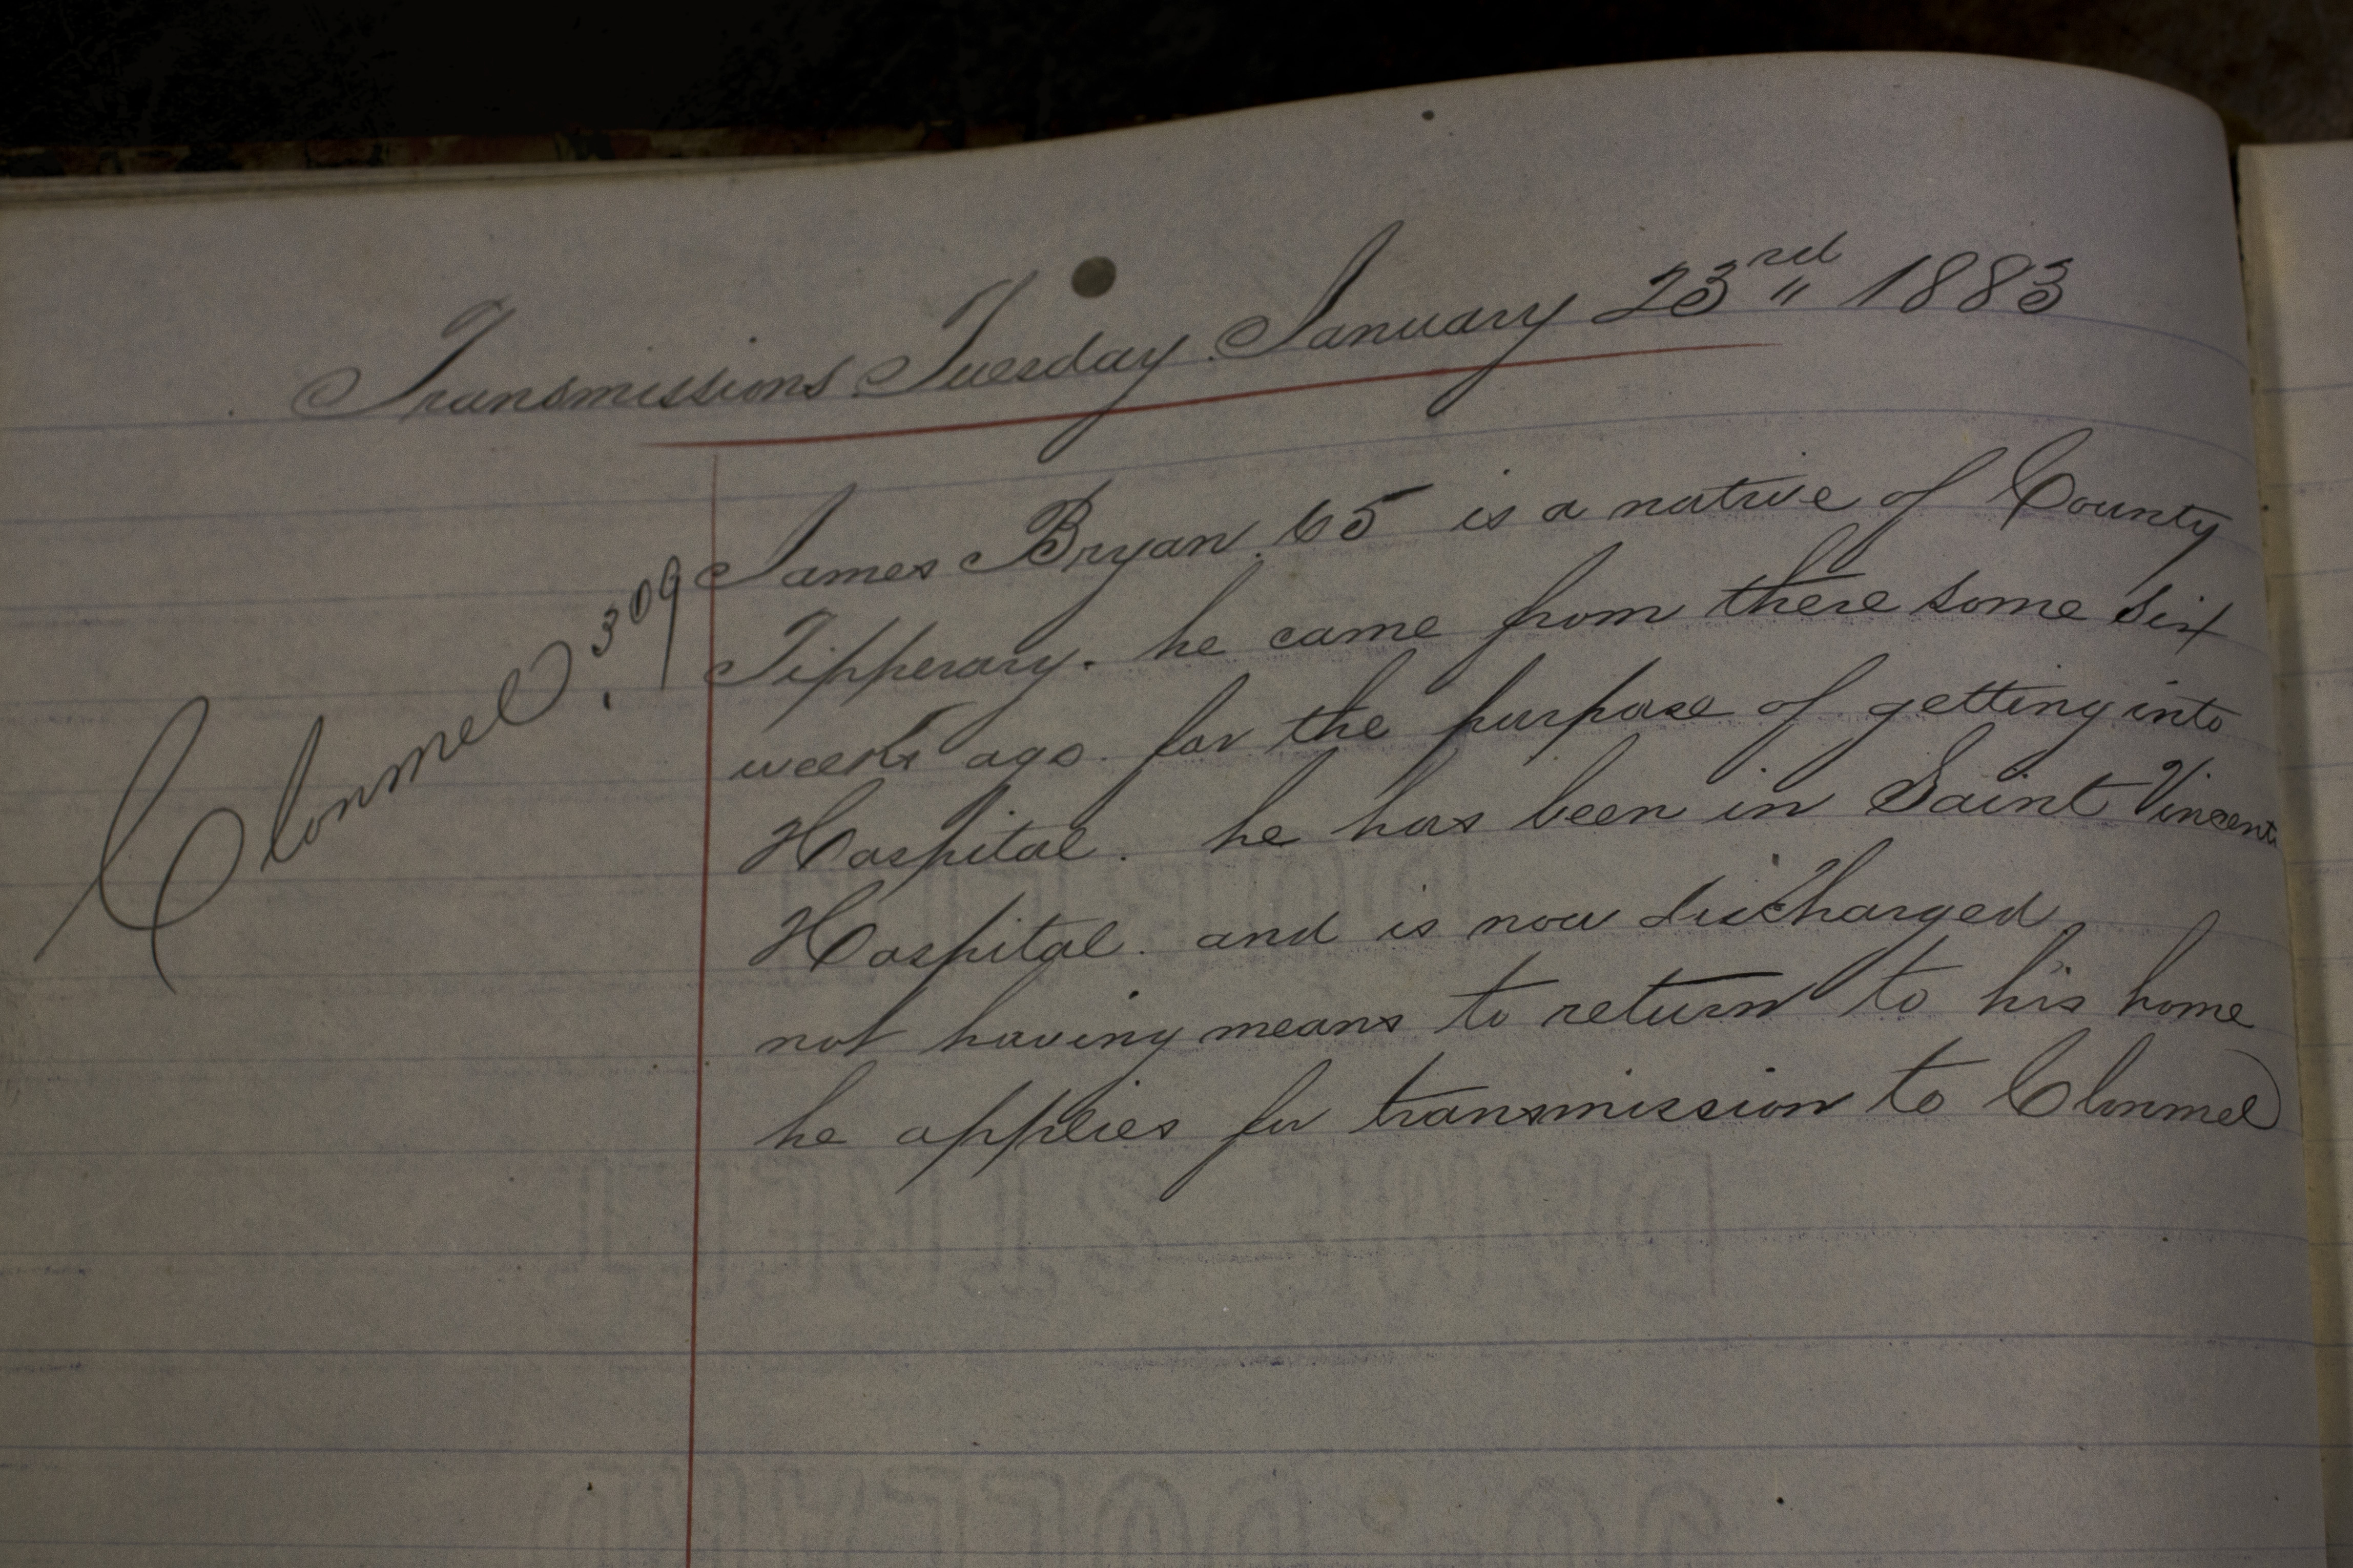 Transmissions Tuesday January 23rd 1883
Clonmel. 309
James Bryan 65 is a native of County
Tipperary. he came from there some six
weeks ago for the purpose of getting into
Hospital. he has been in Saint Vincents
Hospital. and is now discharged
not having means to return to his home
he applies for transmission to Clonmel